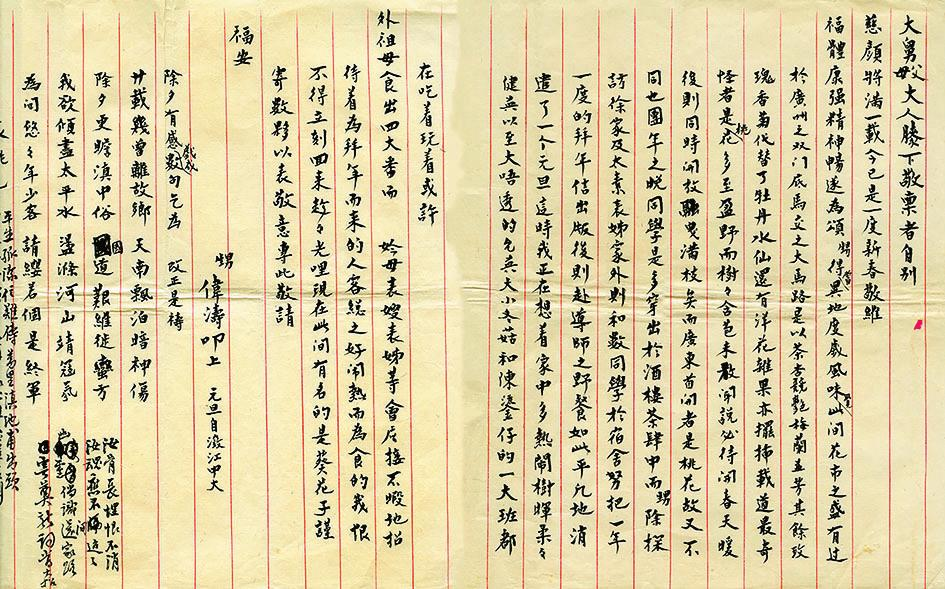 大舅父母大人膝下敬稟者自別
慈顏將滿一載今已是一度新春敬維
福體康强精神暢遂為頌 甥得異地度歲風味此間花市之盛有过
於廣州之双门底馬交之大馬路是以茶杏競艷梅蘭並芳其餘玫
瑰香菊代替了牡丹水仙還有洋花雜果亦擺插載道最奇
怪者是桃花多至盈野而樹々含苞未散聞說必待開春天暖
後則同時開放 曳滿枝矣而廣東首開者是桃花故又不
同也團年之晚同學是多穿出於酒樓茶肆中而甥除探
訪徐家及太素表姊家外則和數同學於宿舍努把一年
一度的拜年信出版後則赴導师之野餐如此平凡地消
遣了一个元旦這時我正在想着家中多熱鬧樹暉柔々
健英以至大唔透的 英大小冬菇和陳鎏仔的一大班都
在吃着玩着或許
外祖母食出四大番而 妗母表嫂表姊等會应接不暇地招
待着為拜年而来的人客総之好闹熱而為食的我恨
不得立刻回来趁々光哩現在此间有名的是葵花子謹
寄數夥以表敬意專此敬請
福安
甥 偉濤叩上 元旦自澂江中大
除夕有感 數句乞為 改正是禱
廿載幾曾離故鄉 天南飄泊暗神傷
除夕更睜滇中俗 國道艱維徙蠻方
我欲傾盡太平水 盪滌河山靖寇氛
為问悠々年少客 請纓若個是終軍
汝骨長埋恨不消
汝魂應不